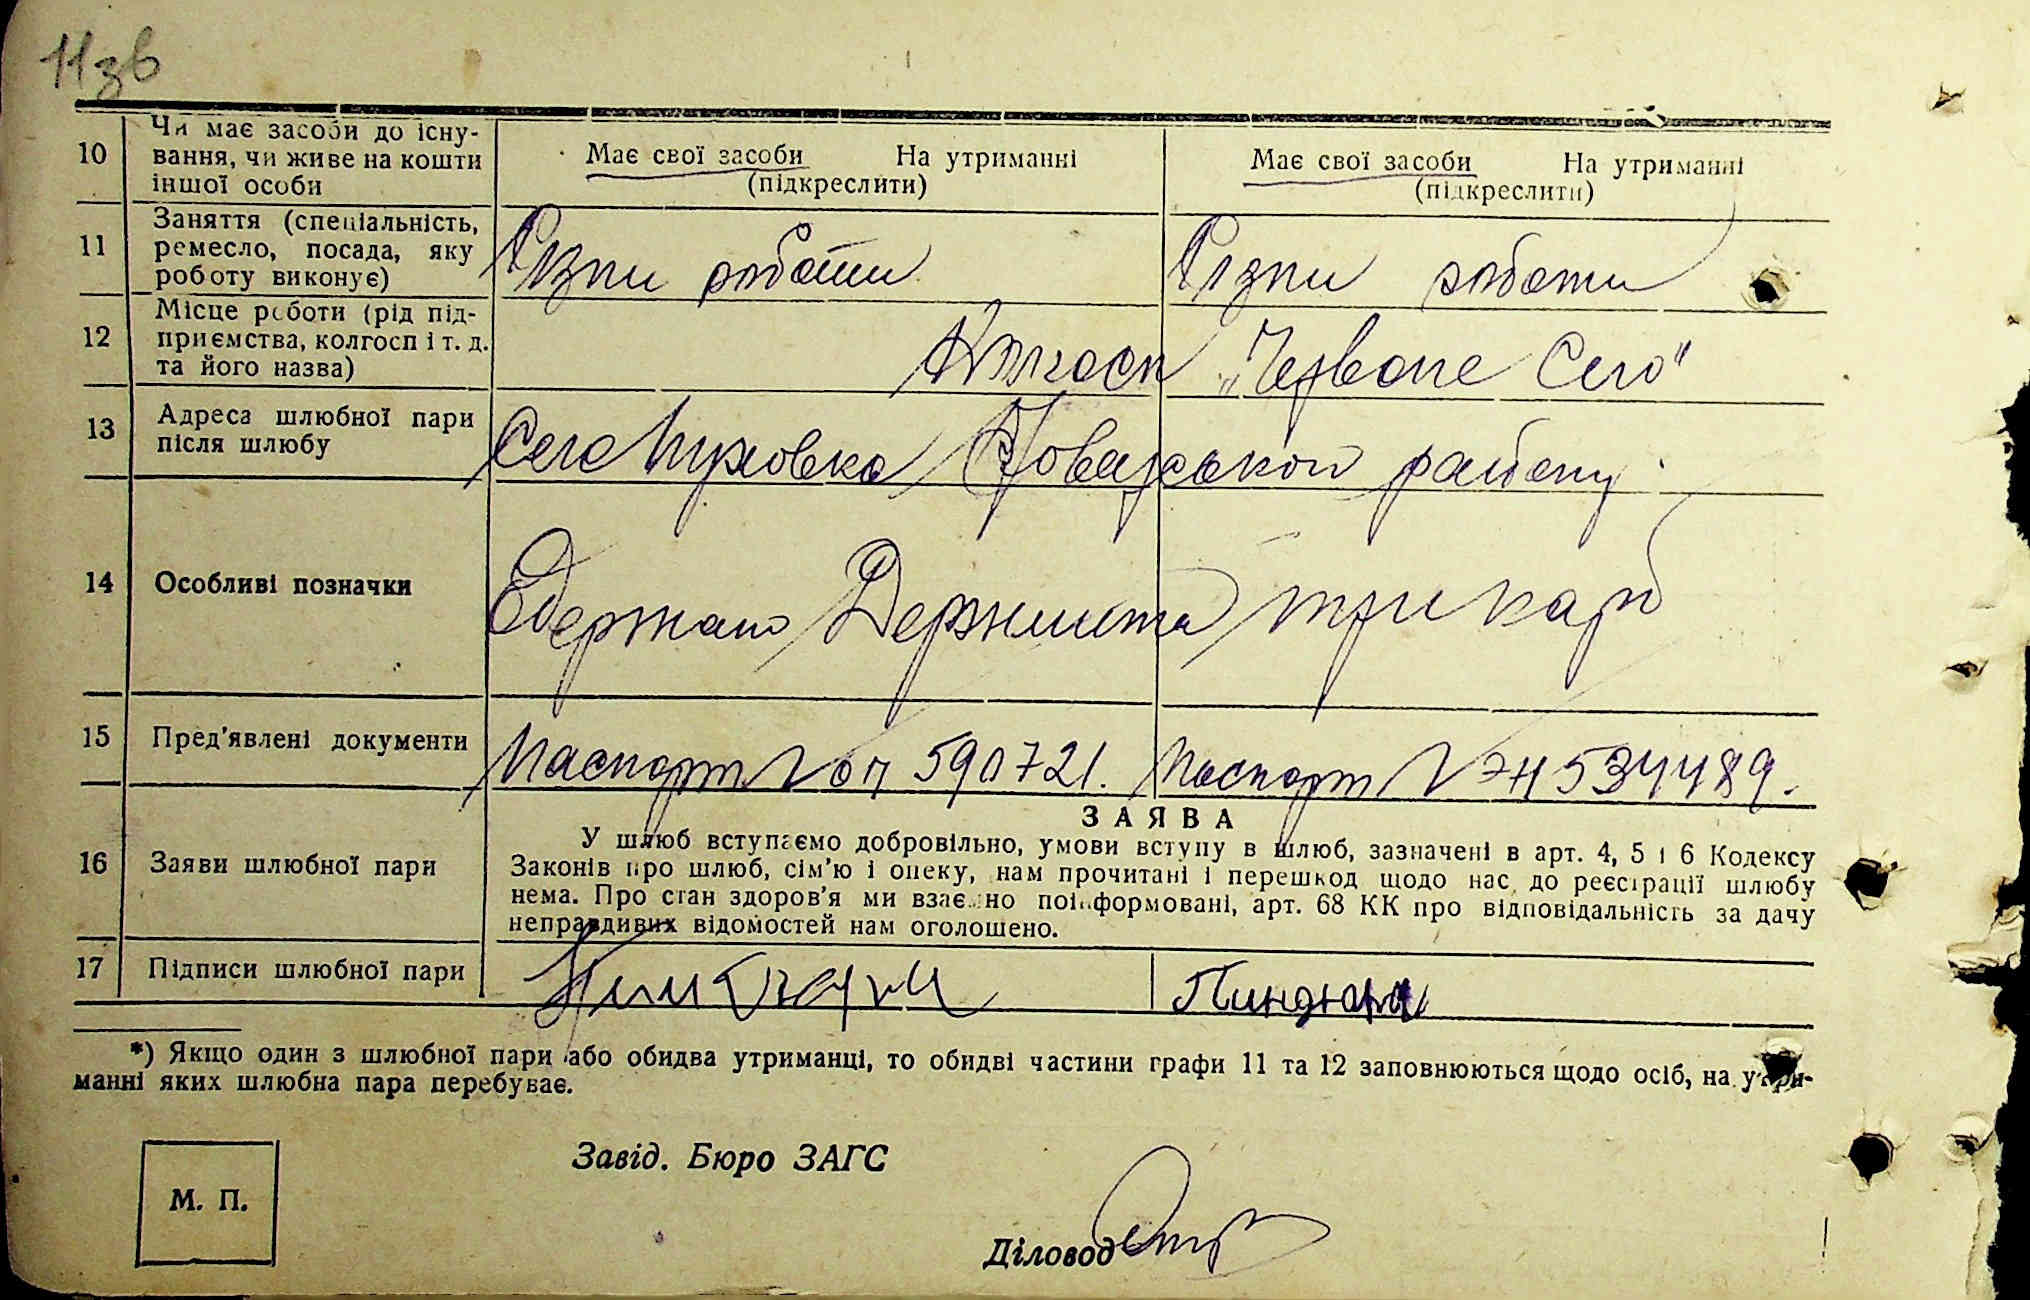 11зв
10 Чи має засоби до існу-
вання, чи живе на кошти
іншої особи
Має свої засоби На утриманні
(підкреслити)
Має свої засоби На утриманні
(підкреслити)
11 Заняття (спеціальність,
ремесло, посада, яку
роботу виконує)
Різни роботи
Різни роботи
12 Місце роботи (рід під-
приємства, колгосп і т. д.
та його назва)
Колгосп „Червоне Село"
13 Адреса шлюбної пари
після шлюбу
Село Пуховка Броварського району
14 Особливі позначки
Одержано Держмита три карб
15 Пред'явлені документи
Паспорт № 590721.
Паспорт № ЭН 534489.
ЗАЯВА
16 Заяви шлюбної пари
У шлюб вступаємо добровільно, умови вступу в шлюб, зазначені в арт. 4, 5 і 6 Кодексу
Законів про шлюб, сім'ю і опеку, нам прочитані і перешкод щодо нас до реєстрації шлюбу
нема. Про стан здоров'я ми взаємно поінформовані, арт. 68 КК про відповідальність за дачу
неправдивих відомостей нам оголошено.
17 Підписи шлюбної пари
Пиндюра
*) Якщо один з шлюбної пари або обидва утриманці, то обидві частини графи 11 та 12 заповнюються щодо осіб, на утри-
манні яких шлюбна пара перебуває.
Завід. Бюро ЗАГС
М. П.
Діловод